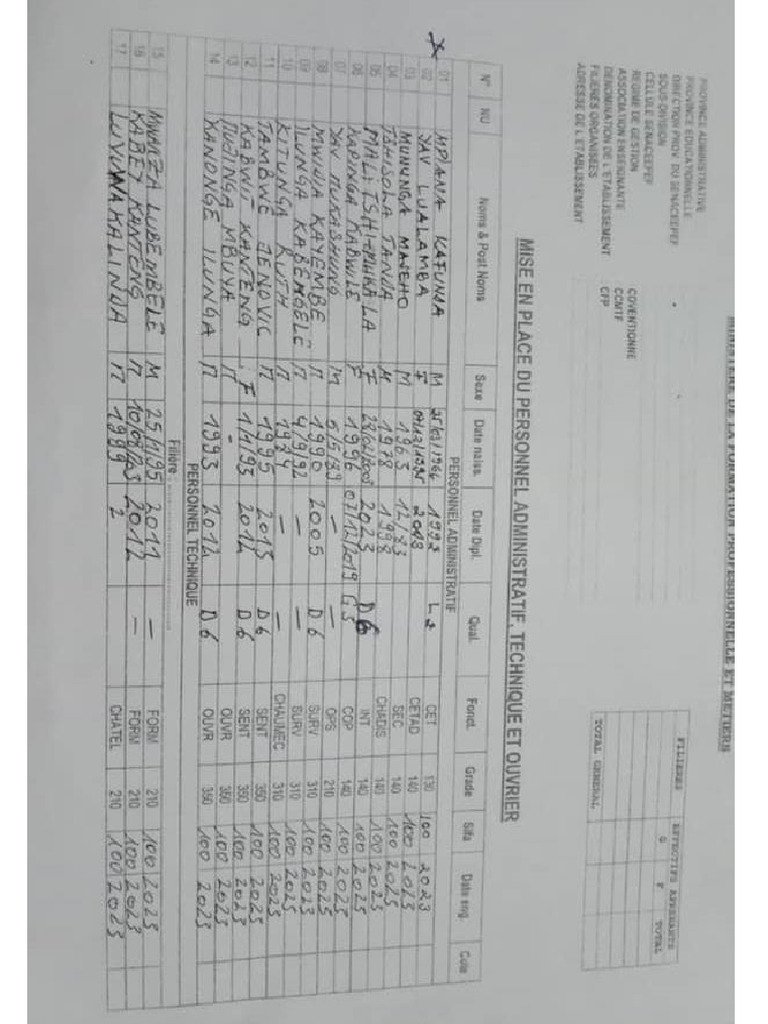 MINISTERE DE LA FORMATION PROFESSIONNELLE ET METIERS
PROVINCE ADMINISTRATIVE
PROVINCE EDUCATIONNELLE
DIRECTION PROV. DU SENACEEPEF
SOUS DIVISION
CELLULE SENACEEPEF
REGIME DE GESTION COVENTIONNE
ASSOCIATION ENSEIGNANTE COMTF
DENOMINATION DE L'ETABLISSEMENT CFP
FILIERES ORGANISEES
ADRESSE DE L'ETABLISSEMENT
FILIERES EFFECTIFS APPRENANTS
G F TOTAL
TOTAL GENERAL
MISE EN PLACE DU PERSONNEL ADMINISTRATIF, TECHNIQUE ET OUVRIER
N° NU Noms & Post Noms Sexe Date naiss. Date Dipl. Qual. Fonct. Grade Sifa Date eng. Cote
PERSONNEL ADMINISTRATIF
01 MPIANA KAFUNDA M 25/03/1966 1992 L2 CET 130 100 2023
02 YAV LUALAMBA F CETAD 140 100 2023
03 MUNUNGA M 1963 12/83 SEC 140 100 2025
04 TSHISOLA TANDA M 1978 1998 CHADIS 140 100 2023
05 MALI F 2023 D6 INT 140 100 2025
06 KAPINGA KABWILE F 1996 07/12/2019 G3 COP 140 100 2025
07 YAV M 5/5/89 — OPS 210 100 2025
08 MWINIA KAYEMBE M 1990 2005 D6 SURV 310 100 2023
09 ILUNGA KABEMBELE M 4/9/92 — — SURV 310 100 2025
10 KITUNGA RUTH M — — CHAUMEC 310 100 2025
11 TAMBWE JENOVIC M 1995 2015 D6 SENT 350 100 2025
12 KABWIT KANTENG F 1/1/93 2012 D6 SENT 350 100 2023
13 MUJINGA MBUYA M - OUVR 350 100 2025
14 KANONGE ILUNGA M 1993 2012 D6 OUVR 350 100 2023
PERSONNEL TECHNIQUE
Filière
15 MWANZA LUBEMBELE M 2011 — FORM 210 100 2025
16 KABEY KANTENG M 2012 — FORM 210 100 2023
17 LUVUWA KALINDA M 1989 CHATEL 210 100 2023